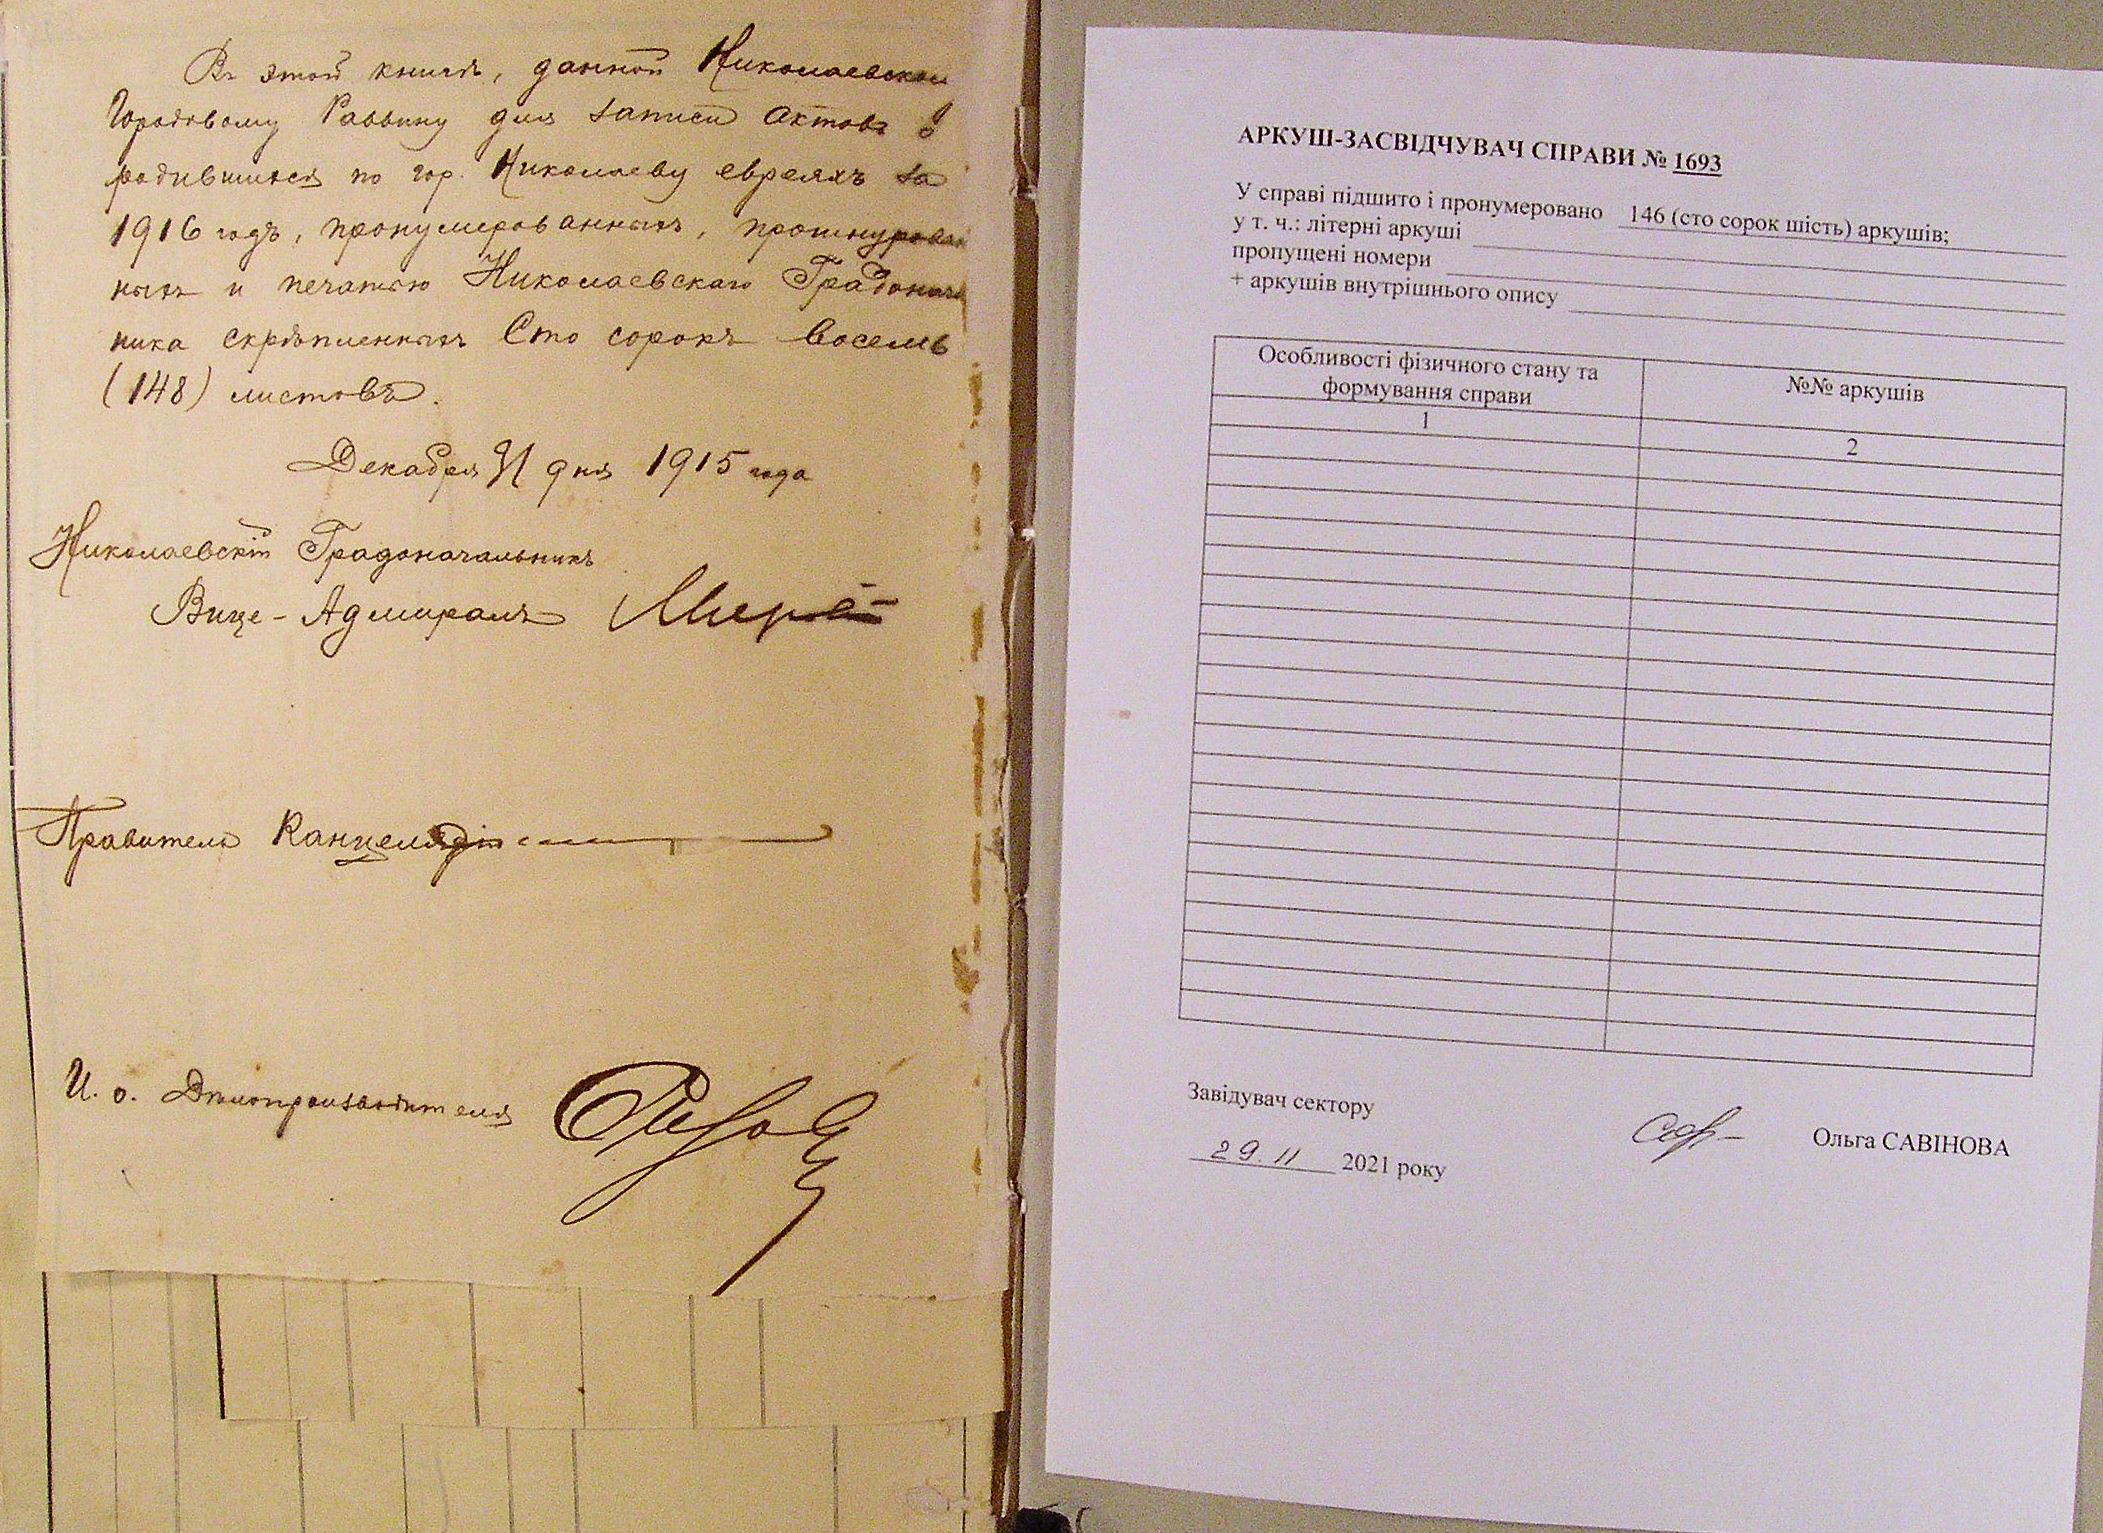 Въ этой книгѣ, данной Николаевском
Городовому Раввину для записи актовъ о
родившихся по гор. Николаеву евреяхъ за
1916 годъ, пронумерованныхъ, прошнурован
ныхъ и печатью Николаевскаго Градонача
ника скрѣпленныхъ Сто сорокъ восемь
(148) листовъ.
Декабря 31 дня 1915 года
Николаевскій Градоначальникъ
Вице-Адмиралъ
Правитель Канцеляріи
И. о. Дѣлопроизводителя
АРКУШ-ЗАСВІДЧУВАЧ СПРАВИ № 1693
У справі підшито і пронумеровано 146 (сто сорок шість) аркушів;
у т. ч.: літерні аркуші
пропущені номери
+ аркушів внутрішнього опису
Особливості фізичного стану та
формування справи
№№ аркушів
1
2
Завідувач сектору
Ольга САВІНОВА
29.11 2021 року